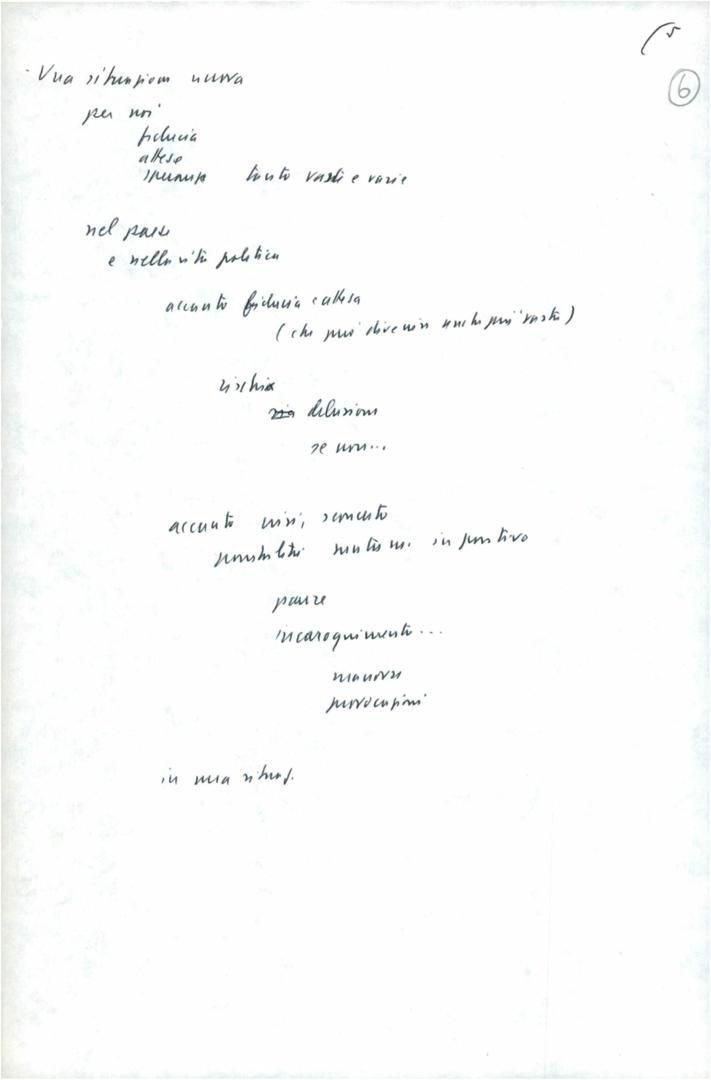 5
6
Una situazione nuova
per noi
fiducia
attese
speranze tanto vaste e varie
nel paese
e nella vita politica
accanto fiducia e attesa
(che può divenire anche più vasta)
rischio
delusione
se non...
accanto crisi, sconcerto
possibilità in positivo
paure
incarognimento...
manovre
provocazioni
in una situaz.